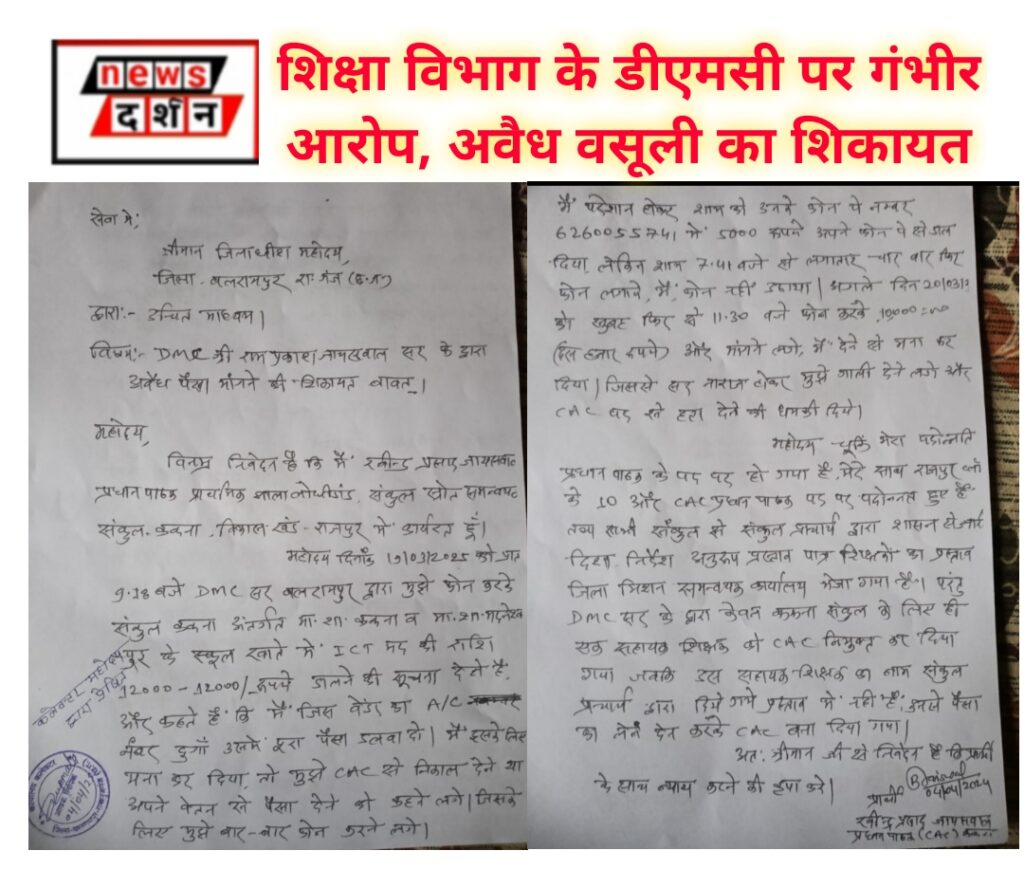 news
दर्शन
शिक्षा विभाग के डीएमसी पर गंभीर
आरोप, अवैध वसूली का शिकायत
सेवा में,
श्रीमान जिलाधीश महोदय,
जिला - बलरामपुर रा. गंज (छ.ग)
द्वारा:- उचित माध्यम।
विषय:- DMC श्री राम प्रकाश जायसवाल सर के द्वारा
अवैध पैसा मांगने की शिकायत बाबत्।
महोदय,
विनम्र निवेदन है कि मैं रवीन्द्र प्रसाद जायसवाल
प्रधान पाठक प्राथमिक शाला लोधीडांड, संकुल स्रोत समन्वयक
संकुल - ककना, विकास खंड - राजपुर में कार्यरत हूँ।
महोदय दिनांक 19/03/2025 को प्रातः
9.18 बजे DMC सर बलरामपुर द्वारा मुझे फोन करके
संकुल ककना अंतर्गत मा. शा. ककना व मा. शा.
के स्कूल खाते में ICT मद की राशि
12000-12000/- रुपये डालने की सूचना देते है,
और कहते है कि मैं जिस वेंडर का A/C
नंबर दुगाँ उसमें पूरा पैसा डलवा दो। मैं इसके लिए
मना कर दिया, तो मुझे CAC से निकाल देने या
अपने वेतन से पैसा देने को कहने लगे। जिसके
लिए मुझे बार-बार फोन करने लगे।
कलेक्टर महोदय
द्वारा प्रेषित
04/04/2
मैं परेशान होकर शाम को उनके फोन पे नम्बर
6260055741 में 5000 रूपये अपने फोन पे से डाल
दिया, लेकिन शाम 7.41 बजे से लगातार चार बार फिर
फोन लगाये, मैं फोन नहीं उठाया। अगले दिन 20/03/2
को सुबह फिर से 11.30 बजे फोन करके 10,000=00
(दस हजार रूपये) और मांगने लगे, मैं देने से मना कर
दिया। जिससे सर नाराज होकर मुझे गाली देने लगे और
CAC पद से हटा देने की धमकी दिये।
महोदय चूकिं मेरा पदोन्नति
प्रधान पाठक के पद पर हो गया है, मेरे साथ राजपुर ब्लॉ
के 10 और CAC प्रधान पाठक पद पर पदोन्नत हुए है
तथा सभी संकुल से संकुल प्राचार्य द्वारा शासन से जारी
दिशा निर्देश अनुरूप प्रधान पाठ शिक्षकों का प्रस्ताव
जिला मिशन समन्वयक कार्यालय भेजा गया है। परंतु
DMC सर के द्वारा केवल ककना संकुल के लिए ही
एक सहायक शिक्षक को CAC नियुक्त कर दिया
गया जबकि उस सहायक शिक्षक का नाम संकुल
प्राचार्य द्वारा दिये गये प्रस्ताव में नहीं है, उनसे पैसा
का लेन देन करके CAC बना दिया गया।
अतः श्रीमान जी से निवेदन है कि प्रार्थी
के साथ न्याय करने की कृपा करें।
प्रार्थी
04/04/2024
रवीन्द्र प्रसाद जायसवाल
प्रधान पाठक (CAC) ककना